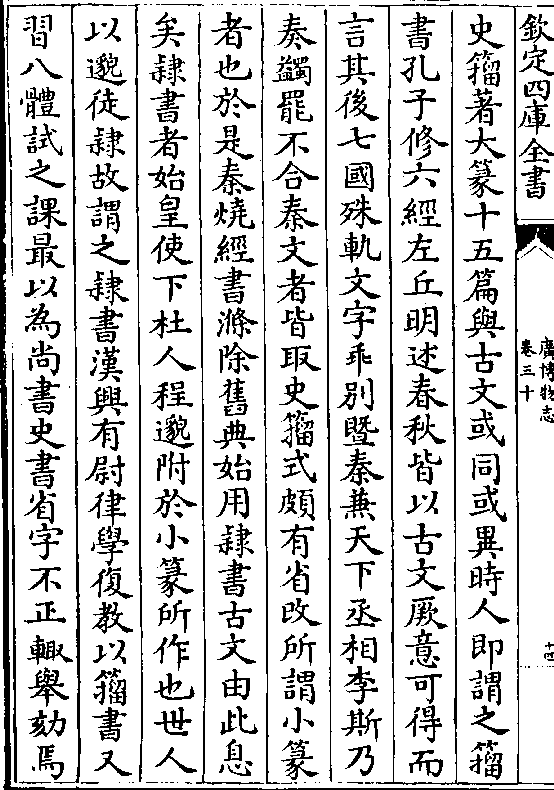 欽定四庫全書
廣博物志
卷三十
十四
史籀著大篆十五篇與古文或同或異時人即謂之籀
書孔子修六經左丘明述春秋皆以古文厥意可得而
言其後七國殊軌文字乖別暨秦兼天下丞相李斯乃
奏蠲罷不合秦文者皆取史籀式頗有省改所謂小篆
者也於是秦燒經書滌除舊典始用隷書古文由此息
矣隷書者始皇使下杜人程邈附於小篆所作也世人
以邈徒隷故謂之隷書漢興有尉律學復教以籀書又
習八體試之課最以為尚書史書省字不正輙舉劾焉